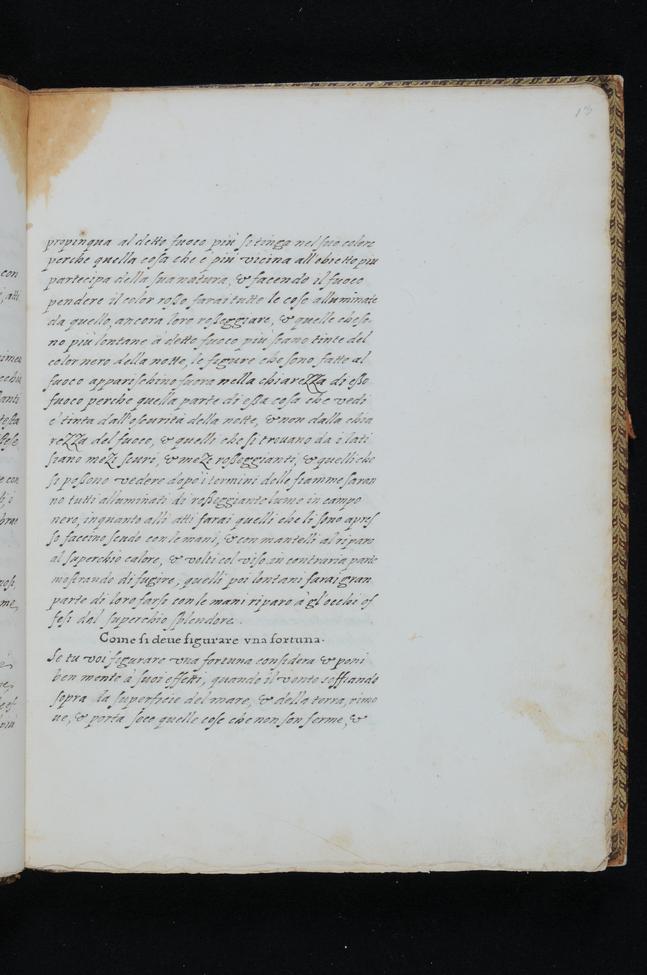 13
propinqua al detto fuoco più si tinga nel suo colore
perche quella cosa che è più vicina all'obietto piu
partecipa della sua natura, & facendo il fuoco
pendere il color rosso farai tutte le cose alluminate
da quello, ancora loro rosseggiare, & quelle che so
no più lontane à detto fuoco piu siano tinte del
color nero della notte, le figure che sono fatte al
fuoco apparischino fuora nella chiarezza di esso
fuoco perche quella parte di essa cosa che vedi
è tinta dall'oscurità della notte, & non dalla chia
rezza del fuoco, & quelle che si trovano da i lati
siano mezi scuri, & mezi rosseggianti, & quelli che
si possono vedere dopo i termini delle fiamme saran
no tutti alluminati di rosseggiante lume in campo
nero, inquanto alli atti farai quelli che li sono apres
so faccino scudo con le mani, & con mantelli al riparo
al superchio calore, & volti col viso in contraria parte
mostrando di fugire, quelli poi lontani farai gran
parte di loro farsi con le mani riparo a gl'occhi of
fesi dal superchio splendore.
Come si deue figurare vna fortuna.
Se tu voi figurare vna fortuna considera & poni
ben mente à suoi effetti, quando il vento soffiando
sopra la superficie del mare, & della terra, rimo
ue, & porta seco quelle cose che non son ferme, &
con